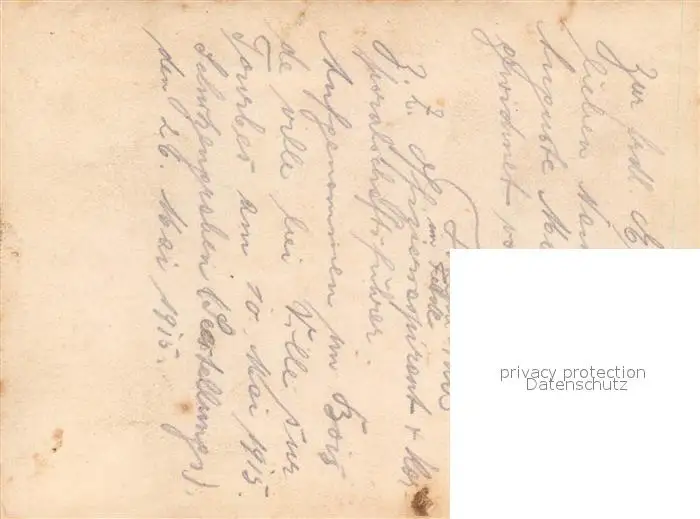 Zur frdl.
lieben
Auguste
gewidmet
im Felde
z. Z. Offiziersaspirant + Kor-
poralschaftsführer.
Aufgenommen im Bois
de ville bei Ville sur
Tourbes am 10. Mai 1915.
Schützengraben (Seestellungs).
den 26. Mai 1915.
privacy protection
Datenschutz